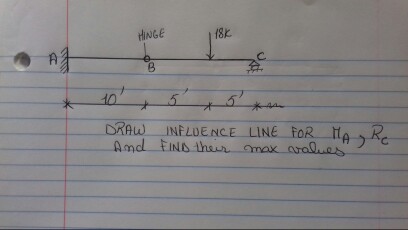 HINGE
18K
A
B
C
10' 5' 5'
DRAW INFLUENCE LINE FOR MA, RC
And FIND their max values